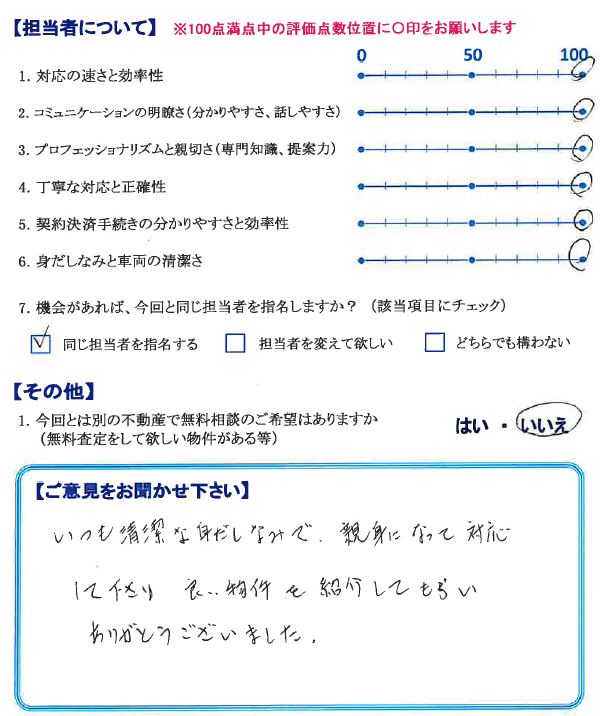 【担当者について】 ※100点満点中の評価点数位置に〇印をお願いします
0 50 100
1. 対応の速さと効率性
2. コミュニケーションの明瞭さ(分かりやすさ、話しやすさ)
3. プロフェッショナリズムと親切さ(専門知識、提案力)
4. 丁寧な対応と正確性
5. 契約決済手続きの分かりやすさと効率性
6. 身だしなみと車両の清潔さ
7. 機会があれば、今回と同じ担当者を指名しますか? (該当項目にチェック)
同じ担当者を指名する 担当者を変えて欲しい どちらでも構わない
【その他】
1. 今回とは別の不動産で無料相談のご希望はありますか
(無料査定をして欲しい物件がある等)
はい ・ いいえ
【ご意見をお聞かせ下さい】
いつも清潔な身だしなみで、親身になって対応
して下さり 良い物件を紹介してもらい
ありがとうございました。